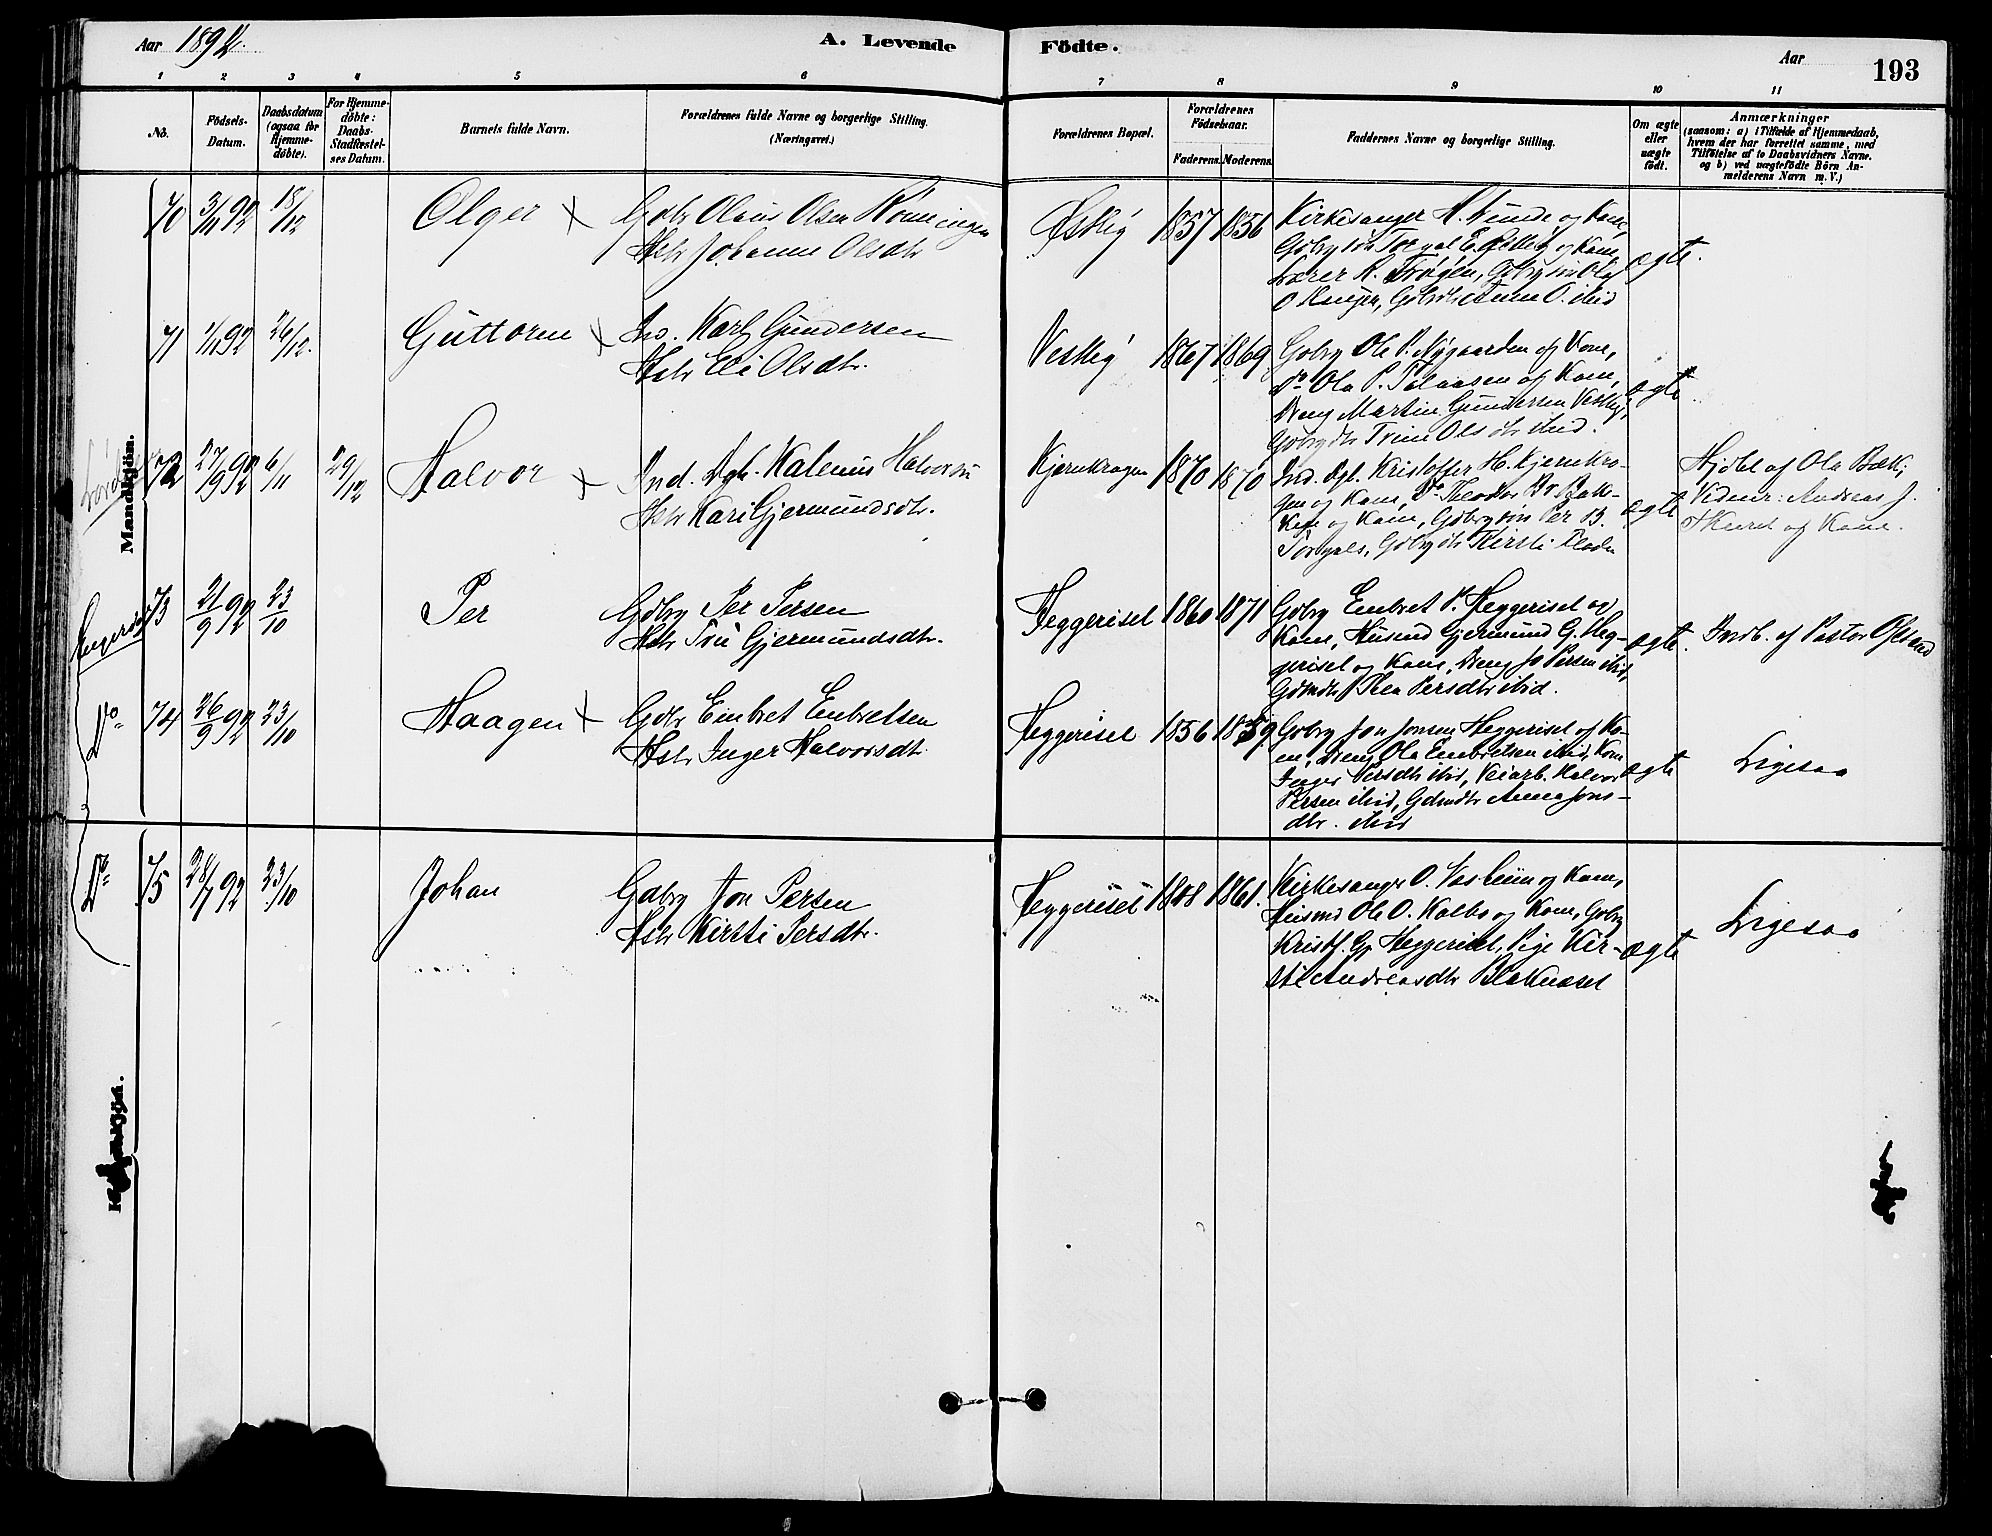 Aar 1892.
A. Levende Födte.
Aar
193
1 2 3 4 5 6 7 8 9 10 11
No.
Födsels-
Datum.
Daabsdatum
(ogsaa for
Hjemme-
döbte).
For Hjemme-
döbte:
Daabs-
Stadfæstel-
ses Datum.
Barnets fulde Navn.
Forældrenes fulde Navne og borgerlige Stilling.
(Næringsvei.)
Forældrenes Bopæl.
Forældrenes
Födselsaar.
Faderens. Moderens.
Faddernes Navne og borgerlige Stilling.
Om ægte
eller
uægte
födt.
Anmærkninger
(saasom: a) i Tilfælde af Hjemmedaab,
hvem der har forrettet samme, med
Tilföielse af to Daabsvidners Navne.
og b) ved uægtefödte Börn An-
melderens Navn m. V.)
Mandkjön.
70 3/11 92 18/12 Olger × Gdbr Olaus Olsen Rønningen
Hstr Johanne Olsdtr
Østlig 1857 1856 Kirkesanger H. Lunde og Kone,
Gdbrg E. og Kone,
Lærer K. Gdbrgsøn Ola
O ibid
ægte.
71 1/11 92 26/12. Guttorm × Ind. Karl Gundersen
Hstr Eli Olsdtr.
Vestlig 1867 1869 Gdbrg Ole P. Nygaarden og Kone,
Do Ola P. og Kone,
Dreng Martin Gundersen Vestlig,
Gdbrgdtr Trine Olsdtr ibid.
ægte
72 27/9 92 6/11 29/12 Halvor × Ind. Dgl. Kalenius Halvorsen
Hstr Kari Gjermundsdtr.
Kjernkrogen 1870 1870 Ind. Dgl. Kristoffer H. Kjernkro-
gen og Kone, Do Theodor Bak-
ken og Kone, Gdbrgsøn Per B.
Torgals, Gdbrgdtr Kirsti Floden
ægte
Hjdbt af Ola Bæk,
Vidner: Andreas J.
og Kone.
Engerdal 73 21/9 92 23/10 Per Gdbrg Per Persen
Hstr Gjermundsdtr.
Heggeriset 1860 1871 Gdbrg Embret P. Heggerisel og
Kone, Husmd Gjermund G. Heg-
gerisel og Kone, Dreng Jo Persen ibid,
Thea Persdtr ibid.
ægte.
Indb. af Pastor
Do. 74 26/9 92 23/10 Haagen × Gdbr Embret Embretsen
Hstr Inger Halvorsdtr.
Heggerisel 1856 1859 Gdbrg Jon Jonsen Heggerisel og Ko-
ne, Dreng Ola Embretsen ibid, Kone
Inger Persdtr ibid, Veiarb. Halvor
Persen ibid, Gdmdtr Anna Jons-
dtr. ibid
ægte
Ligesaa
Do. 75 28/7 92 23/10 Johan Gdbrg Jon Persen
Hstr Kirsti Persdtr.
Heggerisel 1848 1861. Kirkesanger O. og Kone,
Husmd Ole O. Kalbo og Kone, Gdbrg
Kristf. Heggerisel, Pige Kir-
sti Andreasdtr Blaknæset
ægte
Ligesaa